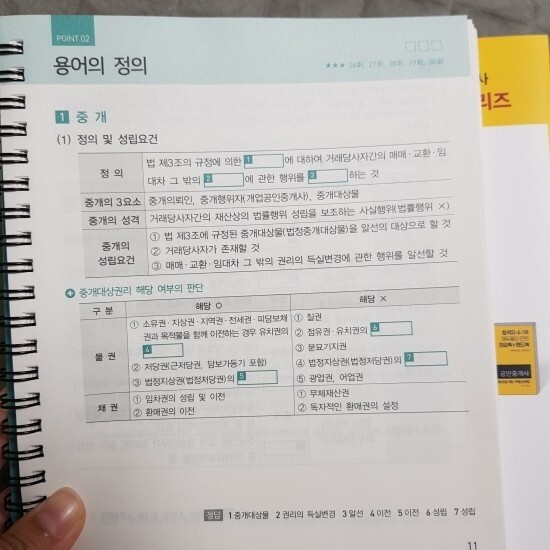 POINT 02
용어의 정의
★★★ 26회, 27회, 28회, 29회, 30회
1 중 개
(1) 정의 및 성립요건
정 의
법 제3조의 규정에 의한 1 에 대하여 거래당사자간의 매매·교환·임
대차 그 밖의 2 에 관한 행위를 3 하는 것
중개의 3요소 중개의뢰인, 중개행위자(개업공인중개사), 중개대상물
중개의 성격 거래당사자간의 재산상의 법률행위 성립을 보조하는 사실행위(법률행위 ×)
중개의
성립요건
① 법 제3조에 규정된 중개대상물(법정중개대상물)을 알선의 대상으로 할 것
② 거래당사자가 존재할 것
③ 매매·교환·임대차 그 밖의 권리의 득실변경에 관한 행위를 알선할 것
중개대상권리 해당 여부의 판단
구 분 해당 ○ 해당 ×
물 권
① 소유권·지상권·지역권·전세권·피담보채
권과 목적물을 함께 이전하는 경우 유치권의
4
② 저당권(근저당권, 담보가등기 포함)
③ 법정지상권(법정저당권)의 5
① 질권
② 점유권·유치권의 6
③ 분묘기지권
④ 법정지상권(법정저당권)의 7
⑤ 광업권, 어업권
채 권
① 임차권의 성립 및 이전
② 환매권의 이전
① 무체재산권
② 독자적인 환매권의 설정
정답 1 중개대상물 2 권리의 득실변경 3 알선 4 이전 5 이전 6 성립 7 성립
11
사
리즈
공인중개사